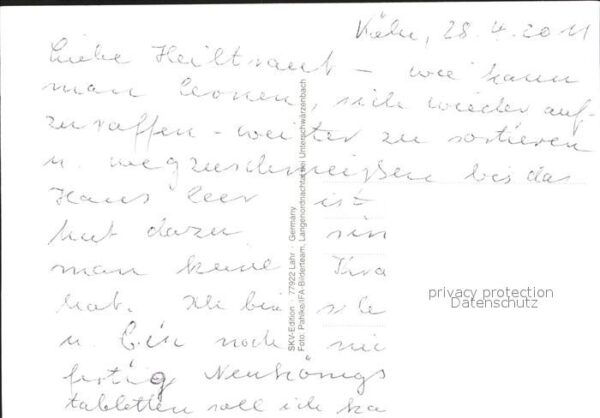 Köln, 28.4.2011
Liebe Heiltraut – wie kann
man lernen, sich wieder auf-
zuraffen – weiter zu sortieren
u. wegzuschmeißen bis das
Haus leer ist
hat dazu
man keine Kra
hat. Ich bin
u. bin noch nie
fertig
tabletten soll ich ka
SKV-Edition · 77922 Lahr · Germany
Foto: Pahlke/IFA-Bilderteam, Langenordnachtal bei Unterschwärzenbach
privacy protection
Datenschutz